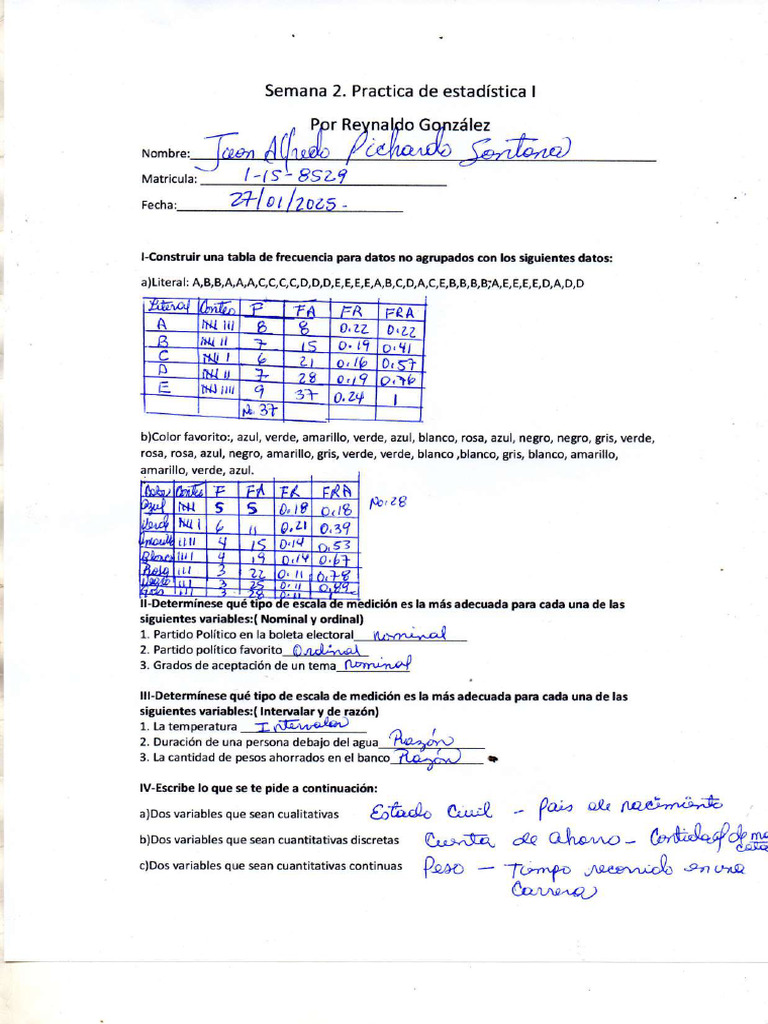 Semana 2. Practica de estadística I
Por Reynaldo González
Nombre: Jean Alfredo Pichardo Santana
Matricula: 1-15-8529
Fecha: 27/01/2025-
I-Construir una tabla de frecuencia para datos no agrupados con los siguientes datos:
a)Literal: A,B,B,A,A,A,C,C,C,C,D,D,D,E,E,E,E,A,B,C,D,A,C,E,B,B,B,B,A,E,E,E,E,D,A,D,D
Literal Conteo F FA FR FRA
A 8 8 0.22 0.22
B 7 15 0.19 0.41
C 6 21 0.16 0.57
D 7 28 0.19 0.76
E 9 37 0.24 1
N: 37
b)Color favorito:, azul, verde, amarillo, verde, azul, blanco, rosa, azul, negro, negro, gris, verde,
rosa, rosa, azul, negro, amarillo, gris, verde, verde, blanco ,blanco, gris, blanco, amarillo,
amarillo, verde, azul.
Conteo F FA FR FRA N: 28
Azul 5 5 0.18 0.18
Verde 6 11 0.21 0.39
Amarillo 4 15 0.14 0.53
Blanco 4 19 0.14 0.67
Rosa 3 22 0.11 0.78
Negro 3 25 0.11 0.89
Gris 3 28 0.11 1
II-Determínese qué tipo de escala de medición es la más adecuada para cada una de las
siguientes variables:( Nominal y ordinal)
1. Partido Político en la boleta electoral Nominal
2. Partido político favorito Ordinal
3. Grados de aceptación de un tema Nominal
III-Determínese qué tipo de escala de medición es la más adecuada para cada una de las
siguientes variables:( Intervalar y de razón)
1. La temperatura Intervalar
2. Duración de una persona debajo del agua Razón
3. La cantidad de pesos ahorrados en el banco Razón
IV-Escribe lo que se te pide a continuación:
a)Dos variables que sean cualitativas Estado Civil - Pais de nacimiento
b)Dos variables que sean cuantitativas discretas Cuenta de ahorro - Cantidad de
c)Dos variables que sean cuantitativas continuas Peso - Tiempo recorrido en una
Carrera